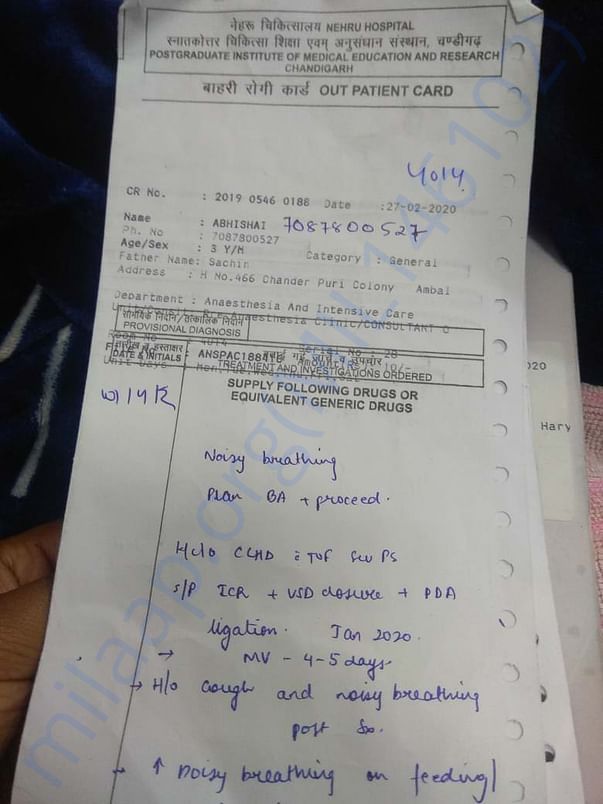 नेहरू चिकित्सालय NEHRU HOSPITAL
स्नातकोत्तर चिकित्सा शिक्षा एवम् अनुसंधान संस्थान, चण्डीगढ़
POSTGRADUATE INSTITUTE OF MEDICAL EDUCATION AND RESEARCH
CHANDIGARH
बाहरी रोगी कार्ड OUT PATIENT CARD
4014
CR No. : 2019 0546 0188 Date :27-02-2020
Name : ABHISHAI 7087800527
Ph. No : 7087800527
Age/Sex : 3 Y/M Category : General
Father Name: Sachin
Address : H No.466 Chander Puri Colony Ambal
Department : Anaesthesia And Intensive Care
Anaesthesia Clinic/CONSULTANT
PROVISIONAL DIAGNOSIS
4014 Serial No. 28
DATE & INITIALS ANSPAC188418
TREATMENT AND INVESTIGATIONS ORDERED
020
SUPPLY FOLLOWING DRUGS OR
EQUIVALENT GENERIC DRUGS
Hary
14 K
Noisy breathing
Plan BA + proceed.
H/o CCHD c TOF sev PS
S/P ICR + VSD closure + PDA
ligation. Jan 2020.
→ MV - 4-5 days
→ H/o cough and noisy breathing
post Sx.
→ ↑ noisy breathing on feeding/
milaap.org